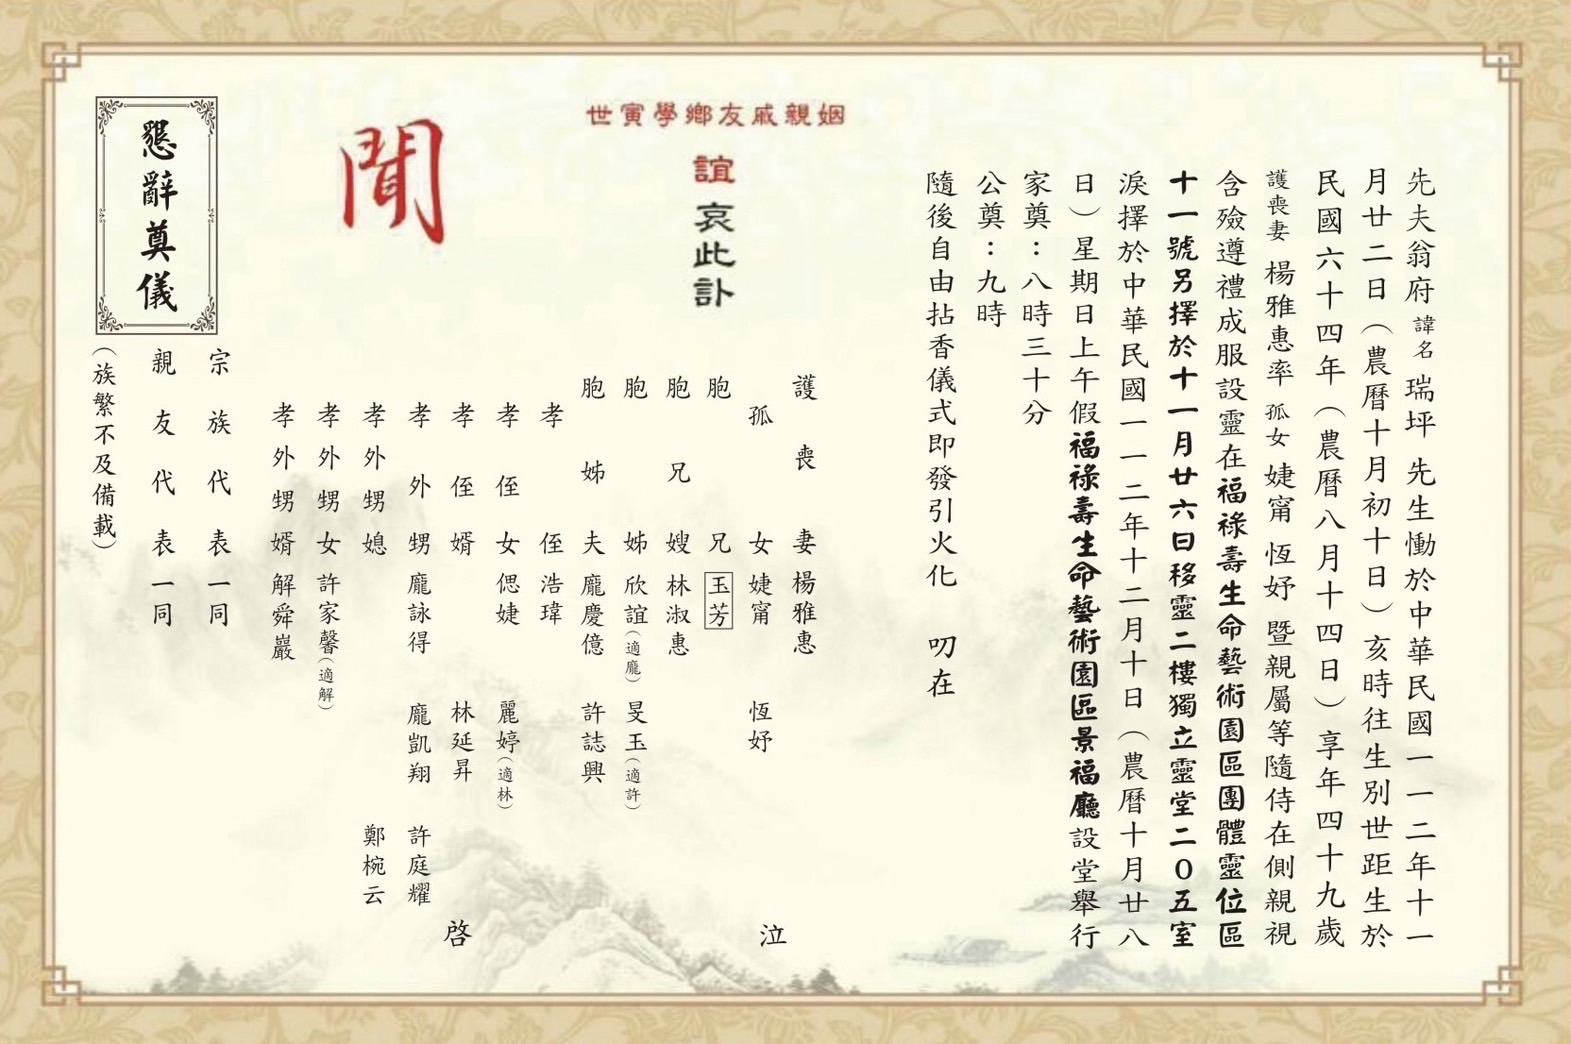 先夫翁府諱名瑞坪先生慟於中華民國一一二年十一
月廿二日（農曆十月初十日）亥時往生別世距生於
民國六十四年（農曆八月十四日）享年四十九歲
護喪妻楊雅惠率孤女婕甯恆妤暨親屬等隨侍在側親視
含殮遵禮成服設靈在福祿壽生命藝術園區團體靈位區
十一號另擇於十一月廿六日移靈二樓獨立靈堂二０五室
淚擇於中華民國一一二年十二月十日（農曆十月廿八
日）星期日上午假福祿壽生命藝術園區景福廳設堂舉行
家奠：八時三十分
公奠：九時
隨後自由拈香儀式即發引火化　叨在
世寅學鄉友戚親姻
誼哀此訃
聞
護喪妻楊雅惠
孤女婕甯　恆妤　泣
胞兄玉芳
胞兄嫂林淑惠
胞姊欣誼（適龐）　旻玉（適許）
胞姊夫龐慶億　許誌興
孝侄浩瑋
孝侄女偲婕　麗婷（適林）
孝侄婿林延昇　啓
孝外甥龐詠得　龐凱翔　許庭耀
孝外甥媳鄭椀云
孝外甥女許家馨（適解）
孝外甥婿解舜巖
宗族代表一同
親友代表一同
（族繁不及備載）
懇辭奠儀